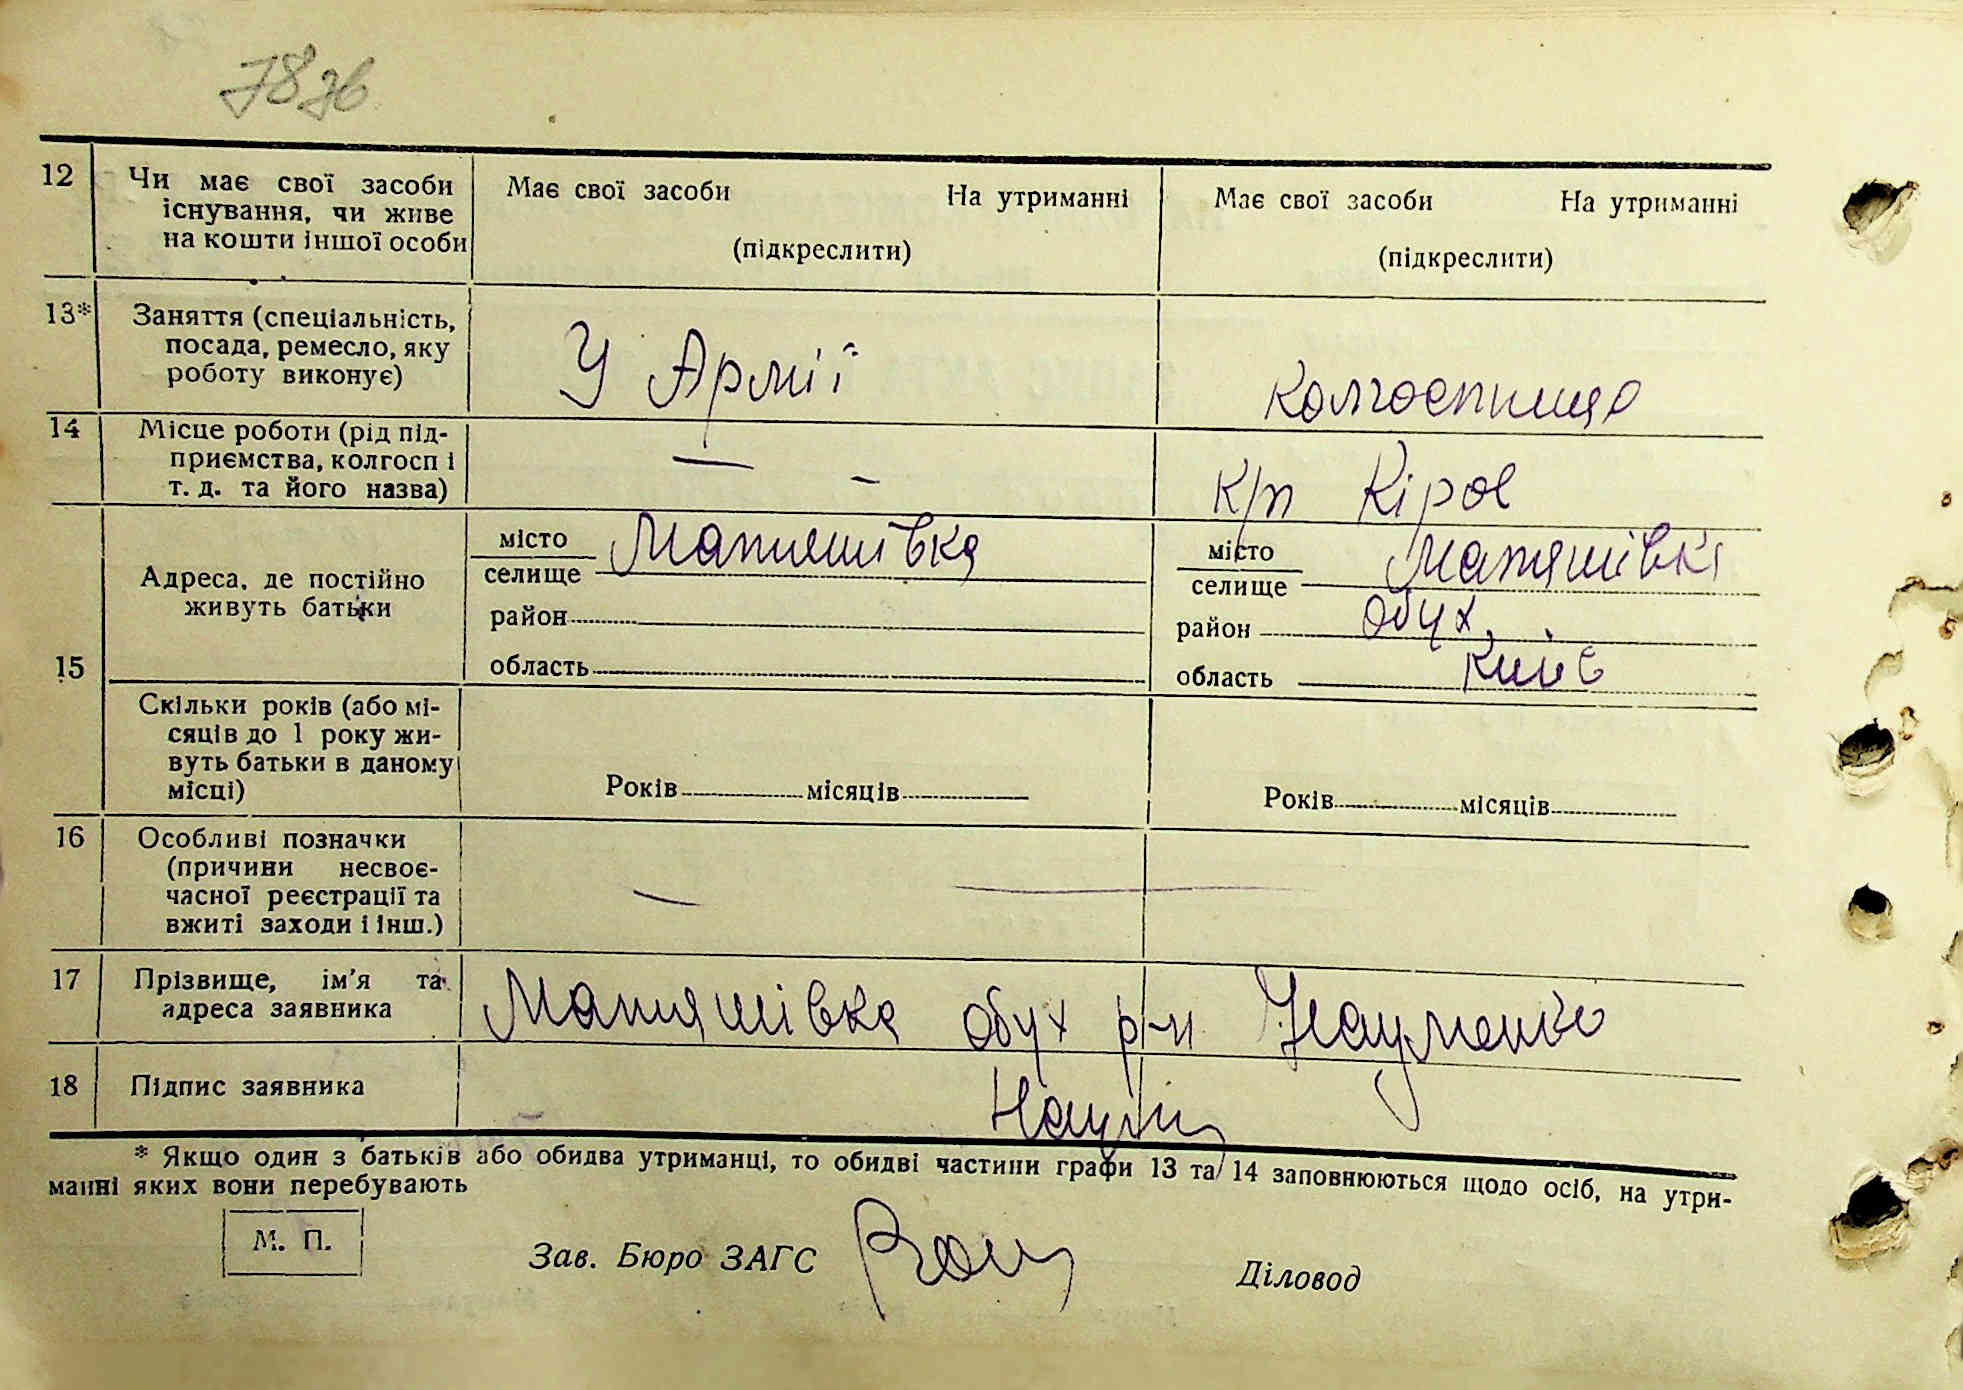 78 зв
12 Чи має свої засоби Має свої засоби На утриманні Має свої засоби На утриманні
існування, чи живе
на кошти іншої особи (підкреслити) (підкреслити)
13* Заняття (спеціальність,
посада, ремесло, яку У Армії колгоспниця
роботу виконує)
14 Місце роботи (рід під-
приємства, колгосп і — – к/п Кіров
т. д. та його назва)
місто Матяшівка місто Матяшівка
Адреса, де постійно селище селище
живуть батьки район район Обух.
15 область область Київ
Скільки років (або мі-
сяців до 1 року жи-
вуть батьки в даному Років місяців Років місяців
місці)
16 Особливі позначки
(причини несвоє-
часної реєстрації та — —
вжиті заходи і інш.)
17 Прізвище, ім'я та Матяшівка Обух р-н Науменко
адреса заявника
18 Підпис заявника
* Якщо один з батьків або обидва утриманці, то обидві частини графи 13 та 14 заповнюються щодо осіб, на утри-
манні яких вони перебувають
М. П. Зав. Бюро ЗАГС Діловод